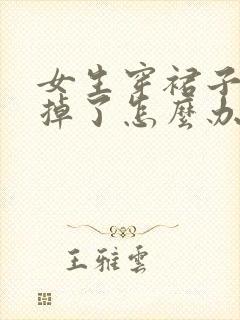 女生穿裙子
掉了怎麼办
王雅雲